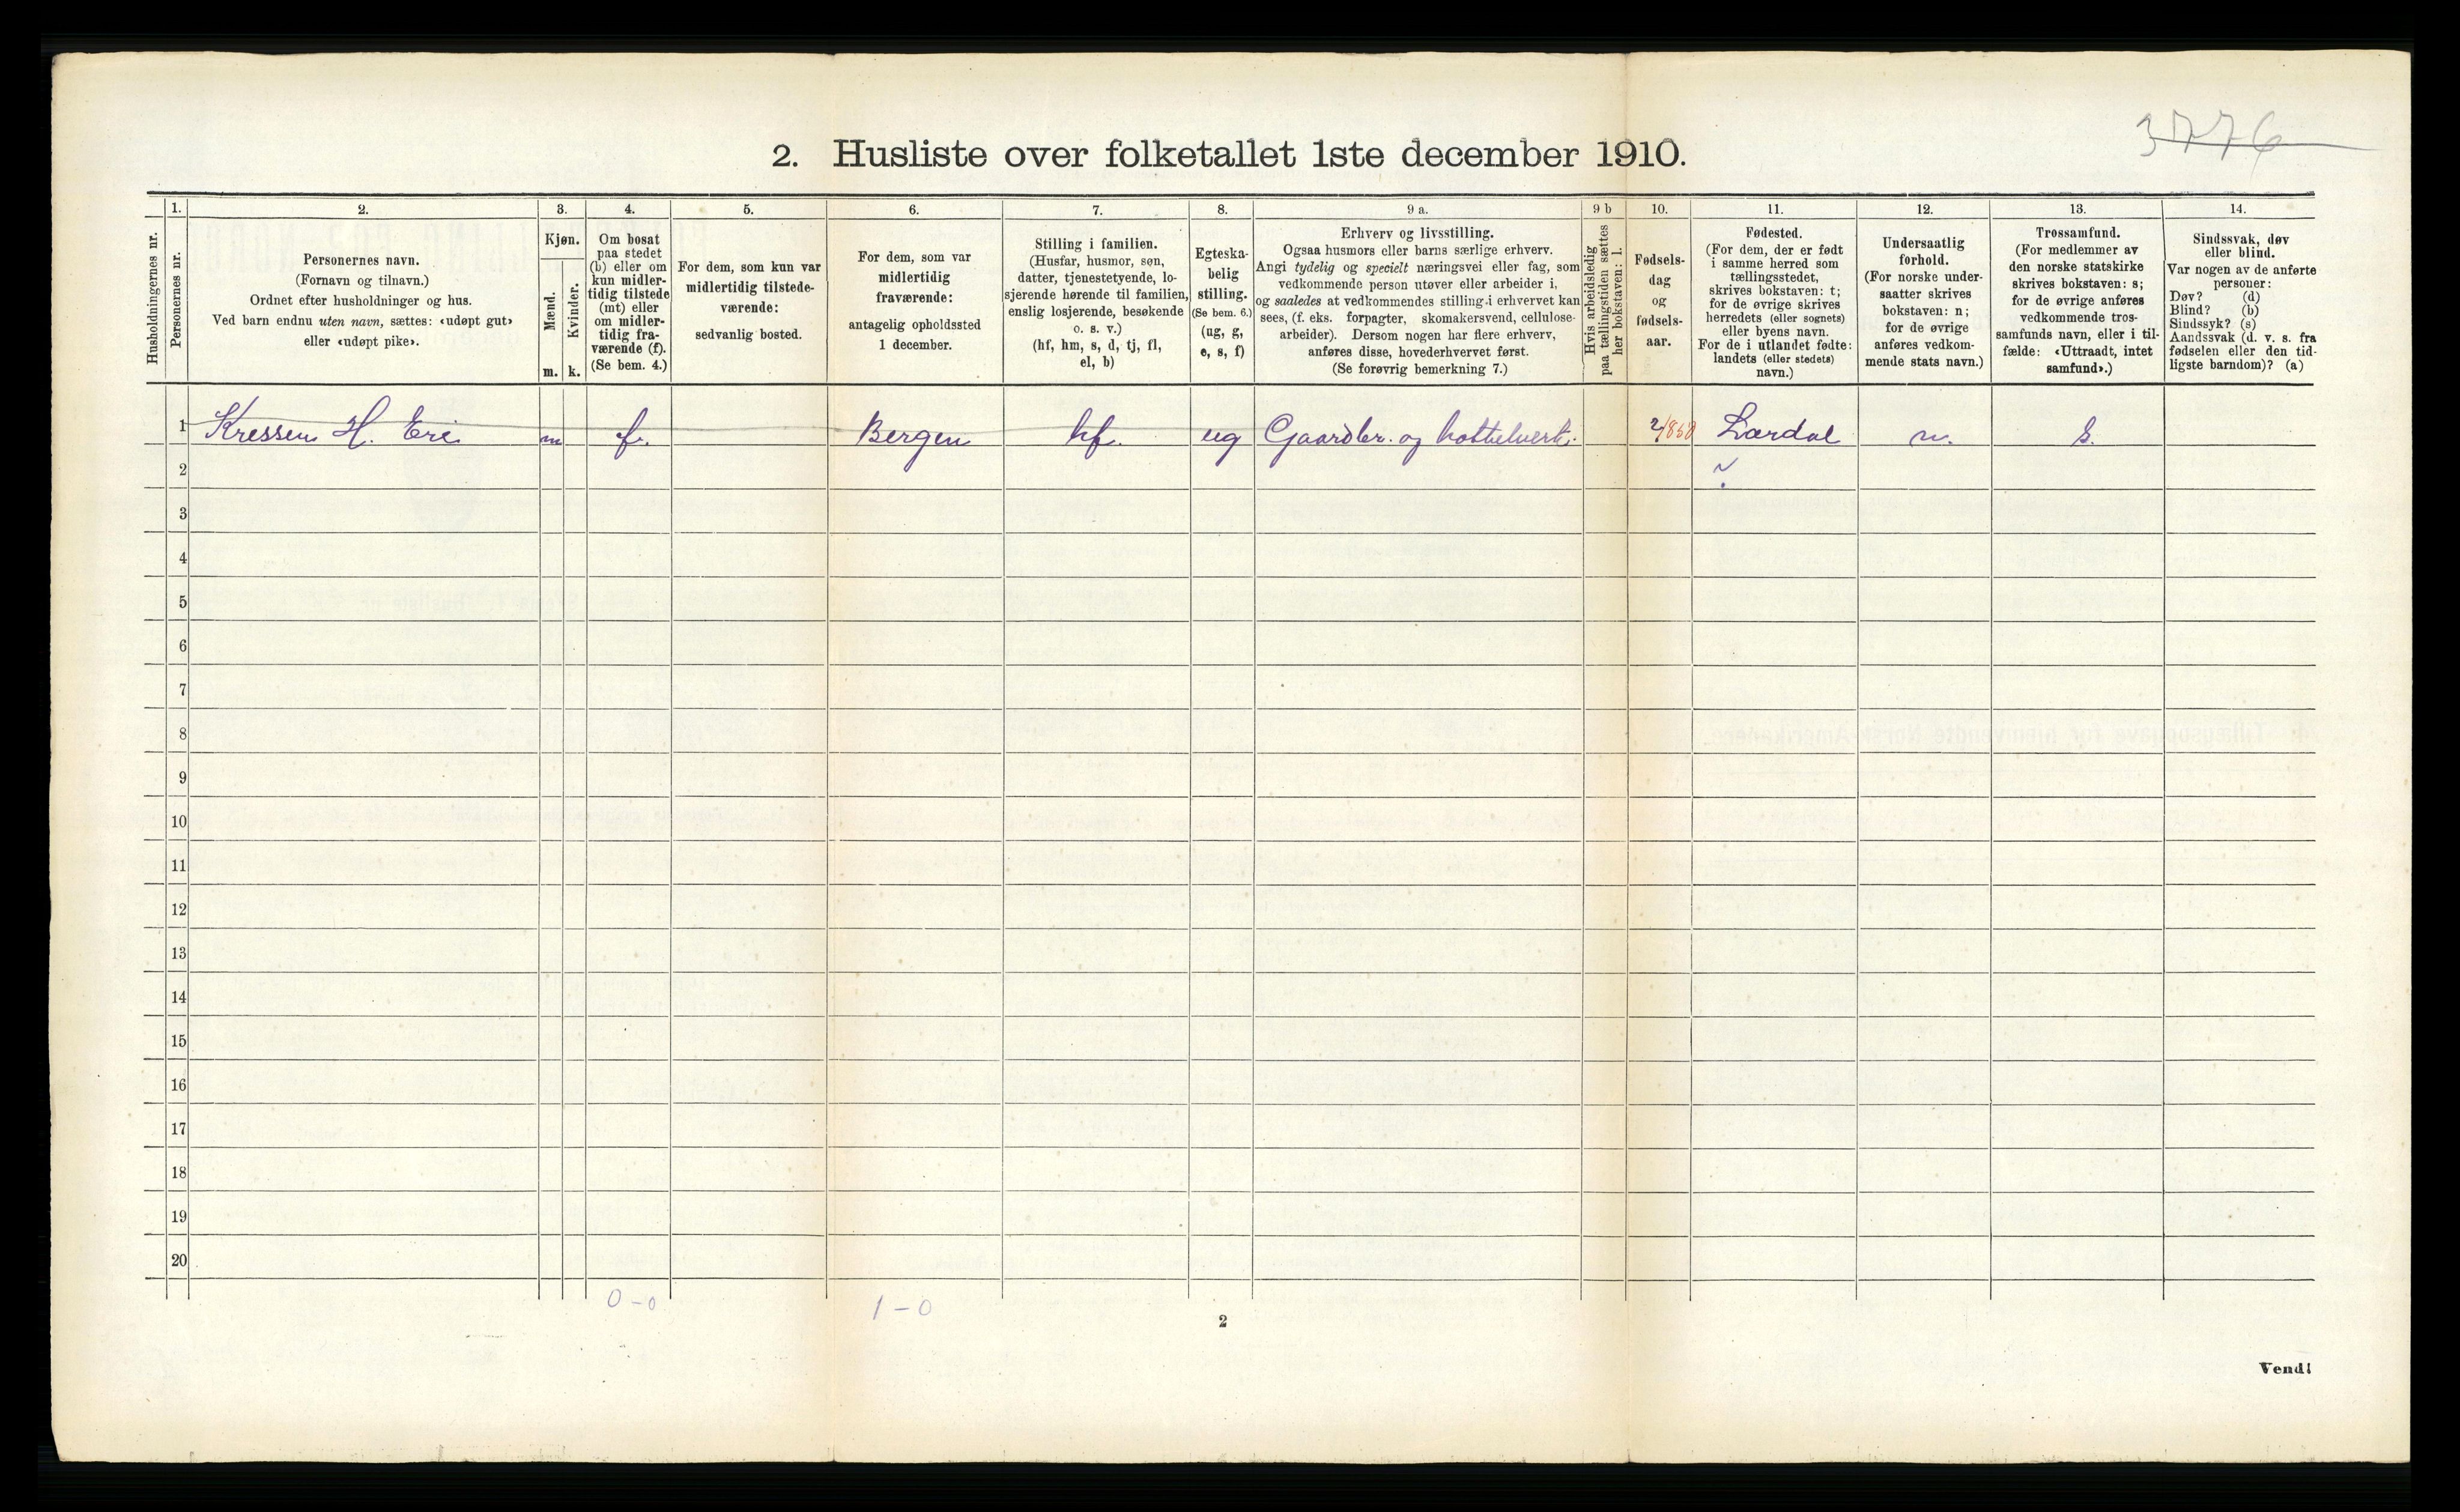 3776
2. Husliste over folketallet 1ste december 1910.
Husholdningernes nr.
1.
Personernes nr.
2.
Personernes navn.
(Fornavn og tilnavn.)
Ordnet efter husholdninger og hus.
Ved barn endnu uten navn, sættes: «udøpt gut»
eller «udøpt pike».
3.
Kjøn.
Mænd.
Kvinder.
m. k.
4.
Om bosat
paa stedet
(b) eller om
kun midler-
tidig tilstede
(mt) eller
om midler-
tidig fra-
værende (f).
(Se bem. 4.)
5.
For dem, som kun var
midlertidig tilstede-
værende:
sedvanlig bosted.
6.
For dem, som var
midlertidig
fraværende:
antagelig opholdssted
1 december.
7.
Stilling i familien.
(Husfar, husmor, søn,
datter, tjenestetyende, lo-
sjerende hørende til familien,
enslig losjerende, besøkende
o. s. v.)
(hf, hm, s, d, tj, fl,
el, b)
8.
Egteska-
belig
stilling.
(Se bem. 6.)
(ug, g,
e, s, f)
9 a.
Erhverv og livsstilling.
Ogsaa husmors eller barns særlige erhverv.
Angi tydelig og specielt næringsvei eller fag, som
vedkommende person utøver eller arbeider i,
og saaledes at vedkommendes stilling i erhvervet kan
sees, (f. eks. forpagter, skomakersvend, cellulose-
arbeider). Dersom nogen har flere erhverv,
anføres disse, hovederhvervet først.
(Se forøvrig bemerkning 7.)
9 b
Hvis arbeidsledig
paa tællingstiden sættes
her bokstaven: l.
10.
Fødsels-
dag
og
fødsels-
aar.
11.
Fødested.
(For dem, der er født
i samme herred som
tællingsstedet,
skrives bokstaven: t;
for de øvrige skrives
herredets (eller sognets)
eller byens navn.
For de i utlandet fødte:
landets (eller stedets)
navn.)
12.
Undersaatlig
forhold.
(For norske under-
saatter skrives
bokstaven: n;
for de øvrige
anføres vedkom-
mende stats navn.)
13.
Trossamfund.
(For medlemmer av
den norske statskirke
skrives bokstaven: s;
for de øvrige anføres
vedkommende tros-
samfunds navn, eller i til-
fælde: «Uttraadt, intet
samfund».)
14.
Sindssvak, døv
eller blind.
Var nogen av de anførte
personer:
Døv? (d)
Blind? (b)
Sindssyk? (s)
Aandssvak (d. v. s. fra
fødselen eller den tid-
ligste barndom)? (a)
1 Kressen H. Eri m f. Bergen hf. ug Gaardbr. og hottelvert. Lærdal n. s.
2
3
4
5
6
7
8
9
10
11
12
13
14
15
16
17
18
19
20
0 - 0 1 - 0
2
Vend!